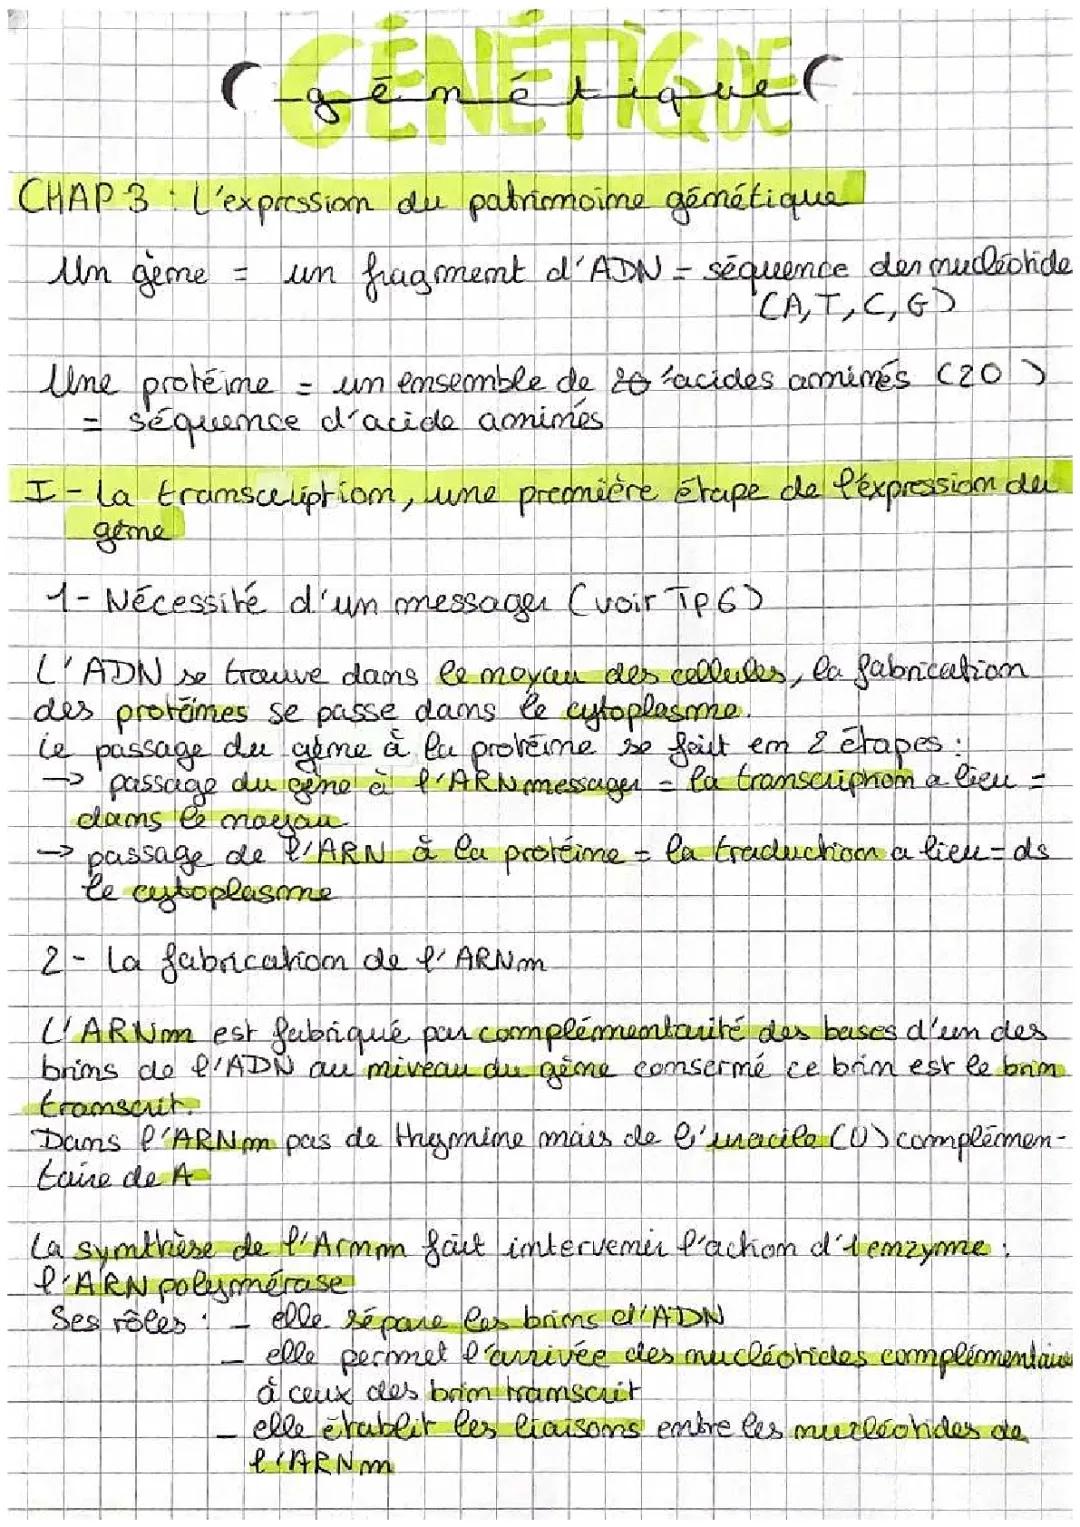 GÉNÉTIQUE
( génétique (
CHAP 3 : L'expression du patrimoine génétique
Un gène = un fragment d'ADN = séquence des nucléotide
(A, T, C, G)
Une protéine = un ensemble de 20 acides aminés (20)
= séquence d'acide aminés
I - la transcription, une première étape de l'expression du
gène
1- Nécessité d'un messager (voir Tp6)
L'ADN se trouve dans le noyau des cellules, la fabrication
des protéines se passe dans le cytoplasme.
Le passage du gène à la protéine se fait en 2 étapes :
→ passage du gène à l'ARN messager = la transcription a lieu =
dans le noyau
→ passage de l'ARN à la protéine = la traduction a lieu = ds
le cytoplasme
2 - la fabrication de l'ARNm
L'ARNm est fabriqué par complémentarité des bases d'un des
brins de l'ADN au niveau du gène consermé ce brin est le brin
transcrit.
Dans l'ARNm pas de thymine mais de l'uracile (U) complémen-
taire de A
La synthèse de l'Arnm fait intervenir l'action d'1 enzyme :
l'ARN polymérase
Ses rôles : - elle sépare les brins d'ADN
- elle permet l'arrivée des nucléotides complémentaires
à ceux des brin transcrit
- elle établit les liaisons entre les nucléotides de
l'ARNm